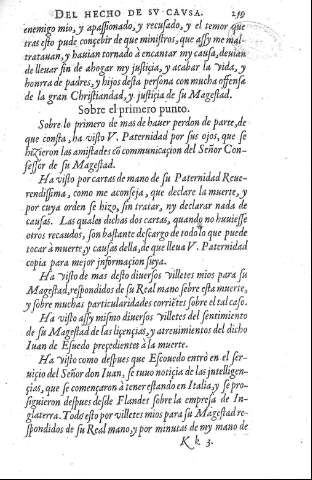 DEL HECHO DE SV CAVSA. 259
enemigo mio, y apassionado, y recusado, y el temor que
tras esto pude conçebir de que ministros, que assy me mal-
tratauan, y hauian tornado à encantar my causa, deuian
de lleuar fin de ahogar my justiçia, y acabar la vida, y
honrra de padres, y hijos desta persona con mucha offensa
de la gran Christiandad, y justiçia de su Magestad.
Sobre el primero punto.
Sobre lo primero de mas de hauer perdon de parte, de
que consta, ha visto V. Paternidad por sus ojos, que se
hizieron las amistades cō communicaçion del Señor Con-
fessor de su Magestad.
Ha visto por cartas de mano de su Paternidad Reue-
rendissima, como me aconseja, que declare la muerte, y
por cuya orden se hizo, sin tratar, ny declarar nada de
causas. Las quales dichas dos cartas, quando no huuiesse
otros recaudos, son bastante descargo de todo lo que puede
tocar à muerte, y causas della, de que lleua V. Paternidad
copia para mejor informaçion suya.
Ha visto de mas desto diuersos villetes mios para su
Magestad, respondidos de su Real mano sobre esta muerte,
y sobre muchas particularidades corriētes sobre el tal caso.
Ha visto assy mismo diuersos villetes del sentimiento
de su Magestad de las liçençias, y atreuimientos del dicho
Iuan de Escuedo preçedientes à la muerte.
Ha visto como despues que Escouedo entrò en el ser-
uiçio del Señor don Iuan, se tuuo notiçia de las intelligen-
çias, que se començaron à tener estando en Italia, y se pro-
siguieron despues desde Flandes sobre la empresa de In-
glaterra. Todo esto por villetes mios para su Magestad re-
spondidos de su Real mano, y por minutas de my mano de
K k 3.